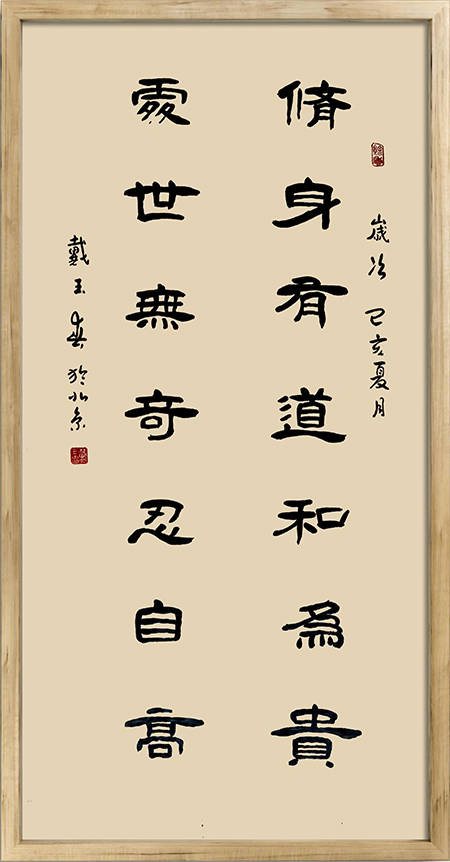 歲次己亥夏月
脩身有道和為貴
處世無奇忍自高
戴玉於北京